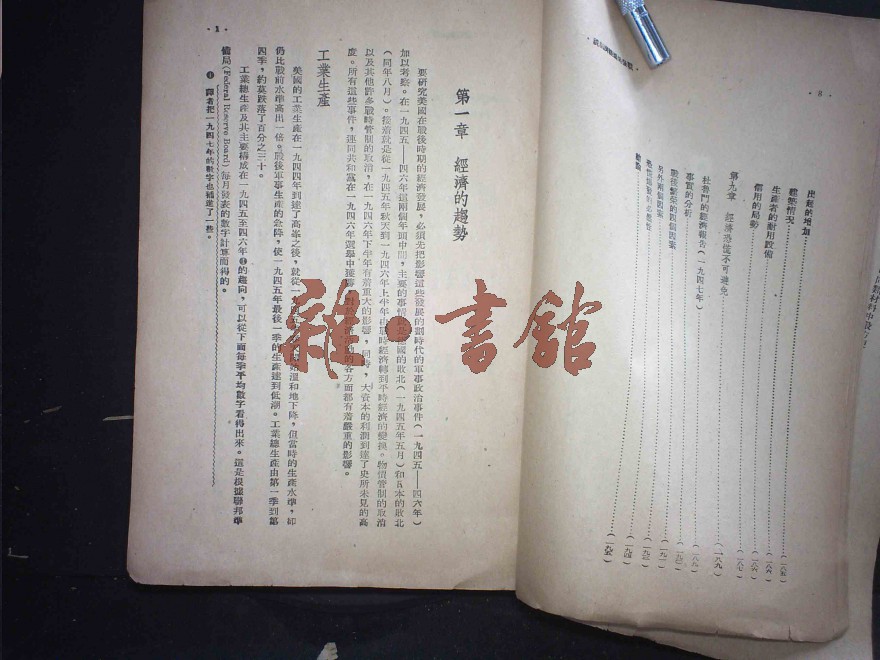 ·8·
出超的增加………(一八五)
建築情況………(一八六)
生產者的耐用設備………(一八六)
僱用的局勢………(一八七)
第九章 經濟恐慌不可避免………(一八九)
杜魯門的經濟報告(一九四七年)………(一八九)
事實的分析
戰後繁榮的四個因素
另外兩個因素
恐慌爆發的必然性
結論
第一章 經濟的趨勢
要研究美國在戰後時期的經濟發展,必須先把影響這些發展的劃時代的軍事政治事件(一九四五——四六年)
加以考察。在一九四五——四六年這兩個年頭中間,主要的事情就是德國的敗北(一九四五年五月)和日本的敗北
(同年八月)。接着就是從一九四五年秋天到一九四六年上半年由戰時經濟轉到平時經濟的變換。物價管制的取消
以及其他許多戰時管制的取消,在一九四六年下半年有着重大的影響,同時,大資本的利潤到達了史所未見的高
度。所有這些事件,連同共和黨在一九四六年選舉中獲勝,對經濟活動的各方面都有着嚴重的影響。
工業生產
美國的工業生產在一九四四年到達了高峯之後,就從一九四五年溫和地下降,但當時的生產水準,却
仍比戰前水準高出一倍。戰後軍事生產的急降,使一九四五年最後一季的生產達到低潮。工業總生產由第一季到第
四季,約莫跌落了百分之三十。
工業總生產及其主要構成在一九四五至四六年❶的趨向,可以從下面每季平均數字看得出來。這是根據聯邦準
備局(Federal Reserve Board)每月發表的數字計算而得的。
❶ 譯者把一九四七年的數字也補進了一些。
·1·
雜·書館